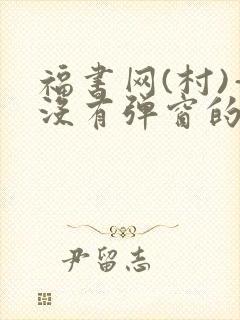 福书网(村)-
没有弹窗的
尹留志